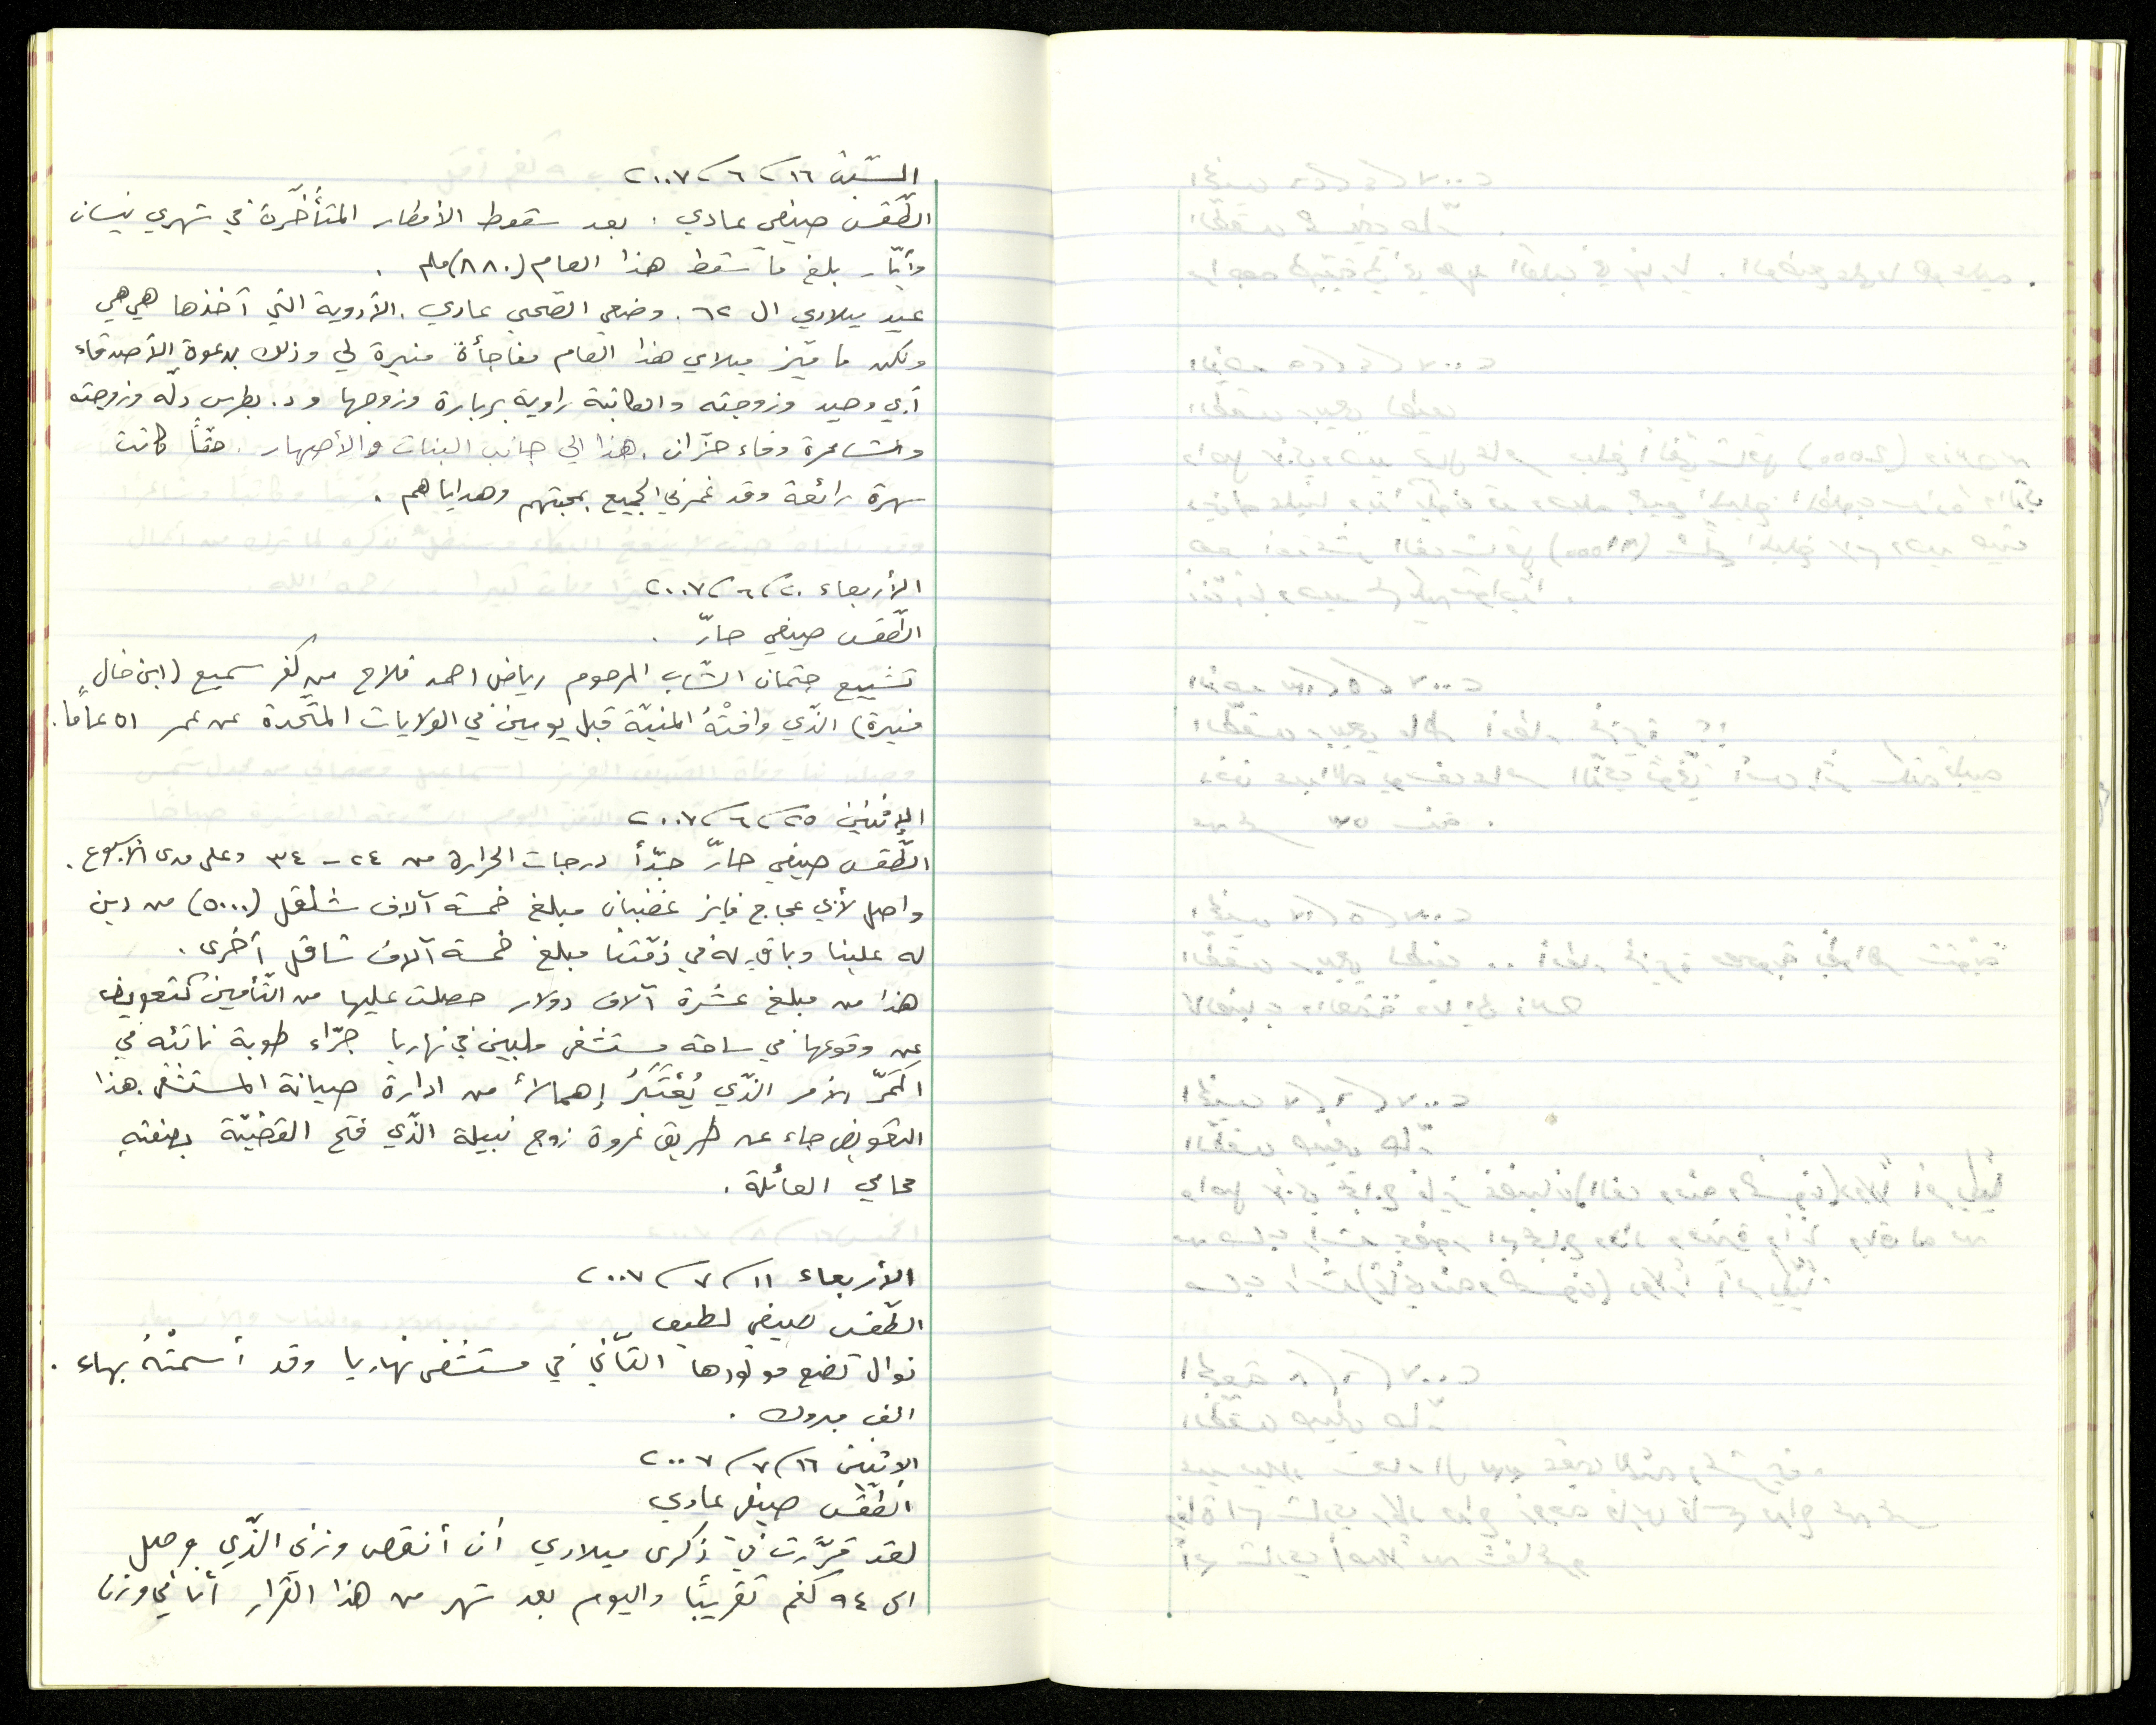 السّبت ١٦/٦/٢٠٠٧
الطّقس صيفي عادي . بعد سقوط الأمطار المتأخّرة في شهري نيسان
وأيّار بلغ ما سقط هذا العام (٨٨٠) ملم .
عيد ميلادي ال ٦٢ . وضعي الصّحي عادي . الأدوية التي آخذها هي هي
ولكن ما ميّز ميلادي هذا العام مفاجأة منيرة لي وذلك بدعوة الأصدقاء
أبي وحيد وزوجته والكاتبة راوية بربارة وزوجها ود. بطرس دلّه وزوجته
والشاعرة دعاء حزّان . هذا الى جانب البنات والأصهار . حقّاً كانت
سهرة رائعة وقد غمرني الجميع بمحبتهم وهداياهم .
الأربعاء ٢٠/٦/٢٠٠٧
الطّقس صيفي حارّ .
تشييع جثمان الشّاب المرحوم رياض احمد فلاح من كفر سميع (ابن خال
منيرة) الذّي وافتْهُ المنيّة قبل يومين في الولايات المتّحدة عن عمر ٥١ عاماً .
الإثنين ٢٥/٦/٢٠٠٧
الطّقس صيفي حارّ جدّاً درجات الحرارة من ٢٤ - ٣٤ وعلى مدى الأسبوع .
واصل لأبي عجاج فايز غضبان مبلغ خمسة آلاف شاقل (٥٠٠٠) من دين
له علينا وباقي له في ذمّتنا مبلغ خمسة آلاف شاقل أخرى .
هذا من مبلغ عشرة آلاف دولار حصلت عليها من التّأمين كتعويض
عن وقوعها في ساحة مستشفى ملبين في نهاريا جرّاء طوبة ناتئه في
المَمَرّ الأمر الذّي يُعْتَبَرُ إهمالاً من ادارة صيانة المستشفى . هذا
التعويض جاء عن طريق عروة زوج نبيلة الذّي فتح القضيّة بصفته
محامي العائلة .
الأربعاء ١١/٧/٢٠٠٧
الطّقس صيفي لطيف
نوال تضع مولودها الثّاني في مستشفى نهاريا وقد أسمتْهُ بهاء .
الف مبروك .
الإثنين ١٦/٧/٢٠٠٧
الطّقس صيفي عادي
لقد قرّرت في ذكرى ميلادي أن أنقص وزني الذّي وصل
الى ٩٤ كغم تقريبًا واليوم بعد شهر من هذا القرار أنا في وزن